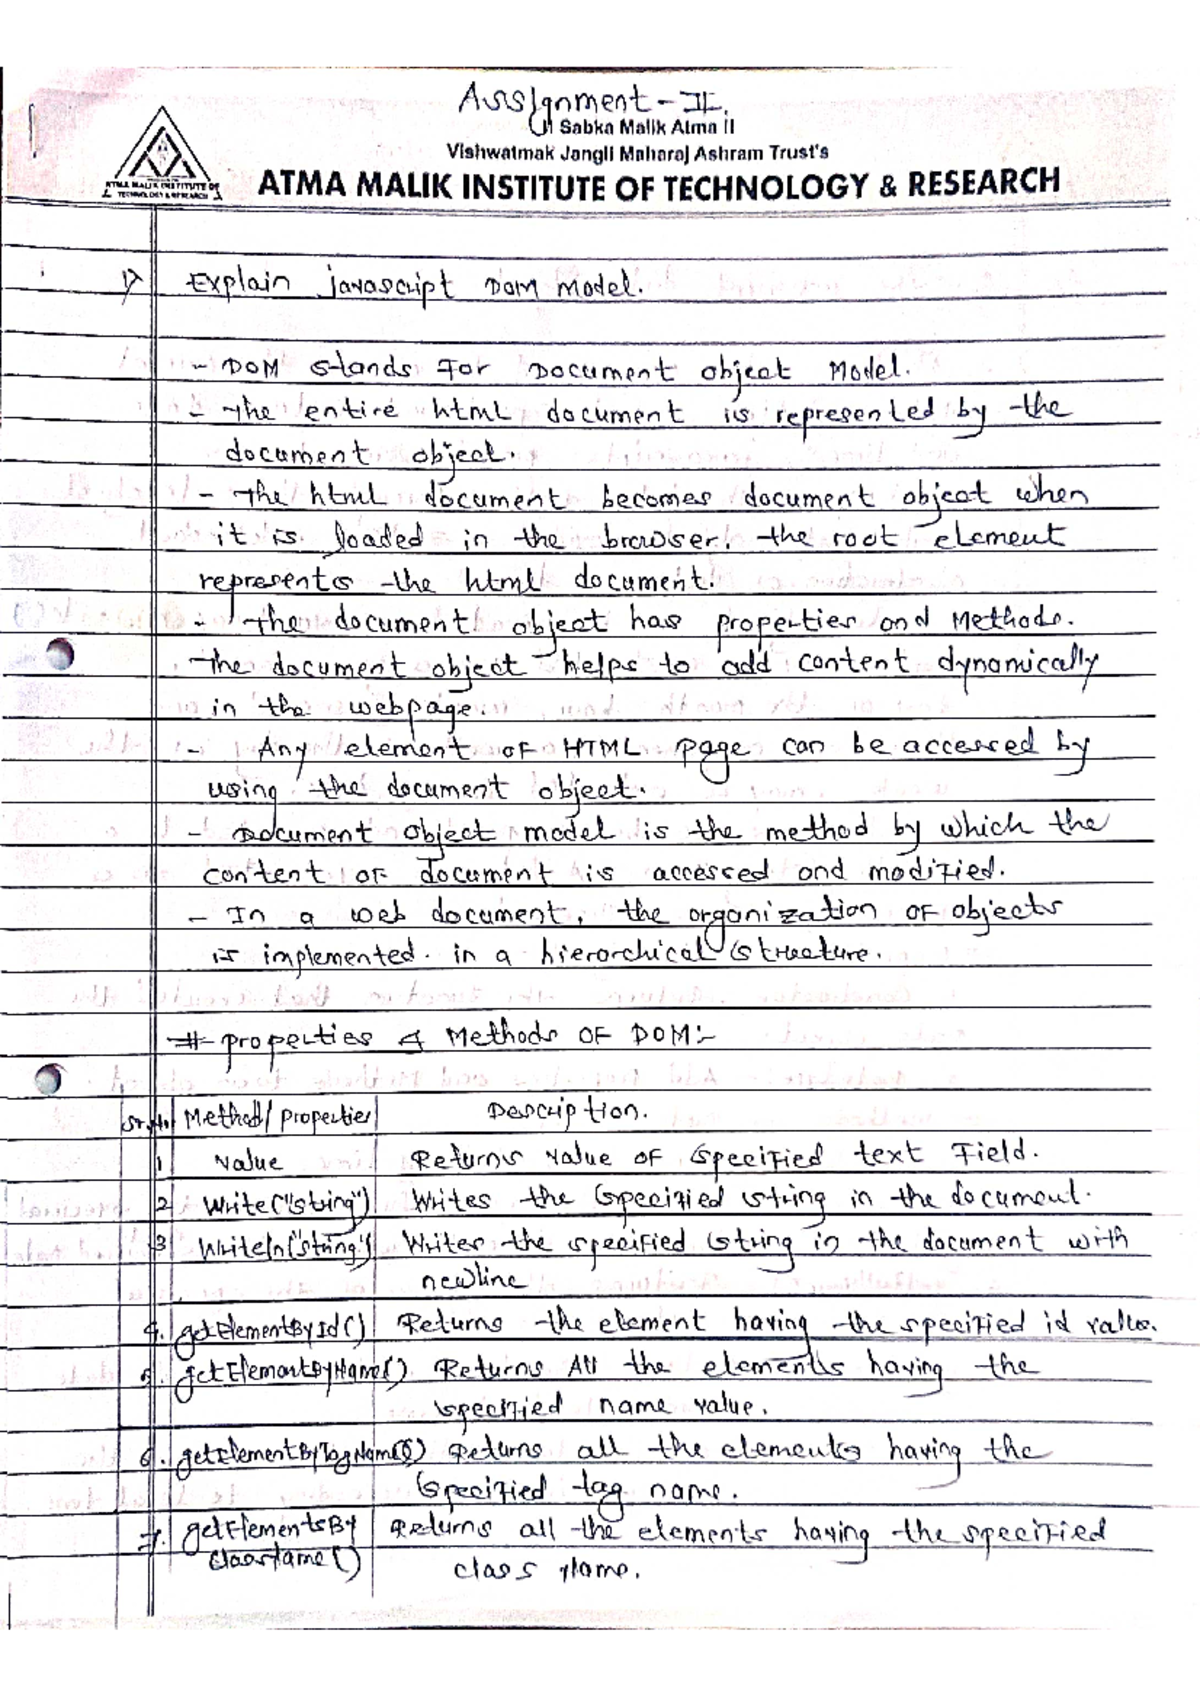 Assignment - II.
॥ Sabka Malik Atma ॥
Vishwatmak Jangli Maharaj Ashram Trust's
ATMA MALIK INSTITUTE OF TECHNOLOGY & RESEARCH
ATMA MALIK INSTITUTE OF
TECHNOLOGY & RESEARCH
1) Explain javascript DOM model.
- DOM stands for Document object Model.
- The entire html document is represented by the
document object.
- The html document becomes document object when
it is loaded in the browser. the root element
represents the html document.
- the document object has properties and Methods.
The document object helps to add content dynamically
in the webpage.
- Any element of HTML page can be accessed by
using the document object.
- Document object model is the method by which the
content of document is accessed and modified.
- In a web document, the organization of objects
is implemented in a hierarchical structure.
# properties & Methods of DOM:-
Sr.No. Method/properties Description.
1 Value Returns value of specified text field.
2 Write("string") Writes the specified string in the document.
3 Writeln("string") Writes the specified string in the document with
newline
4. getElementById() Returns the element having the specified id value.
5. getElementByName() Returns All the elements having the
specified name value.
6. getElementByTagName() Returns all the elements having the
specified tag name.
7. getElementsBy Returns all the elements having the specified
ClassName() class name.